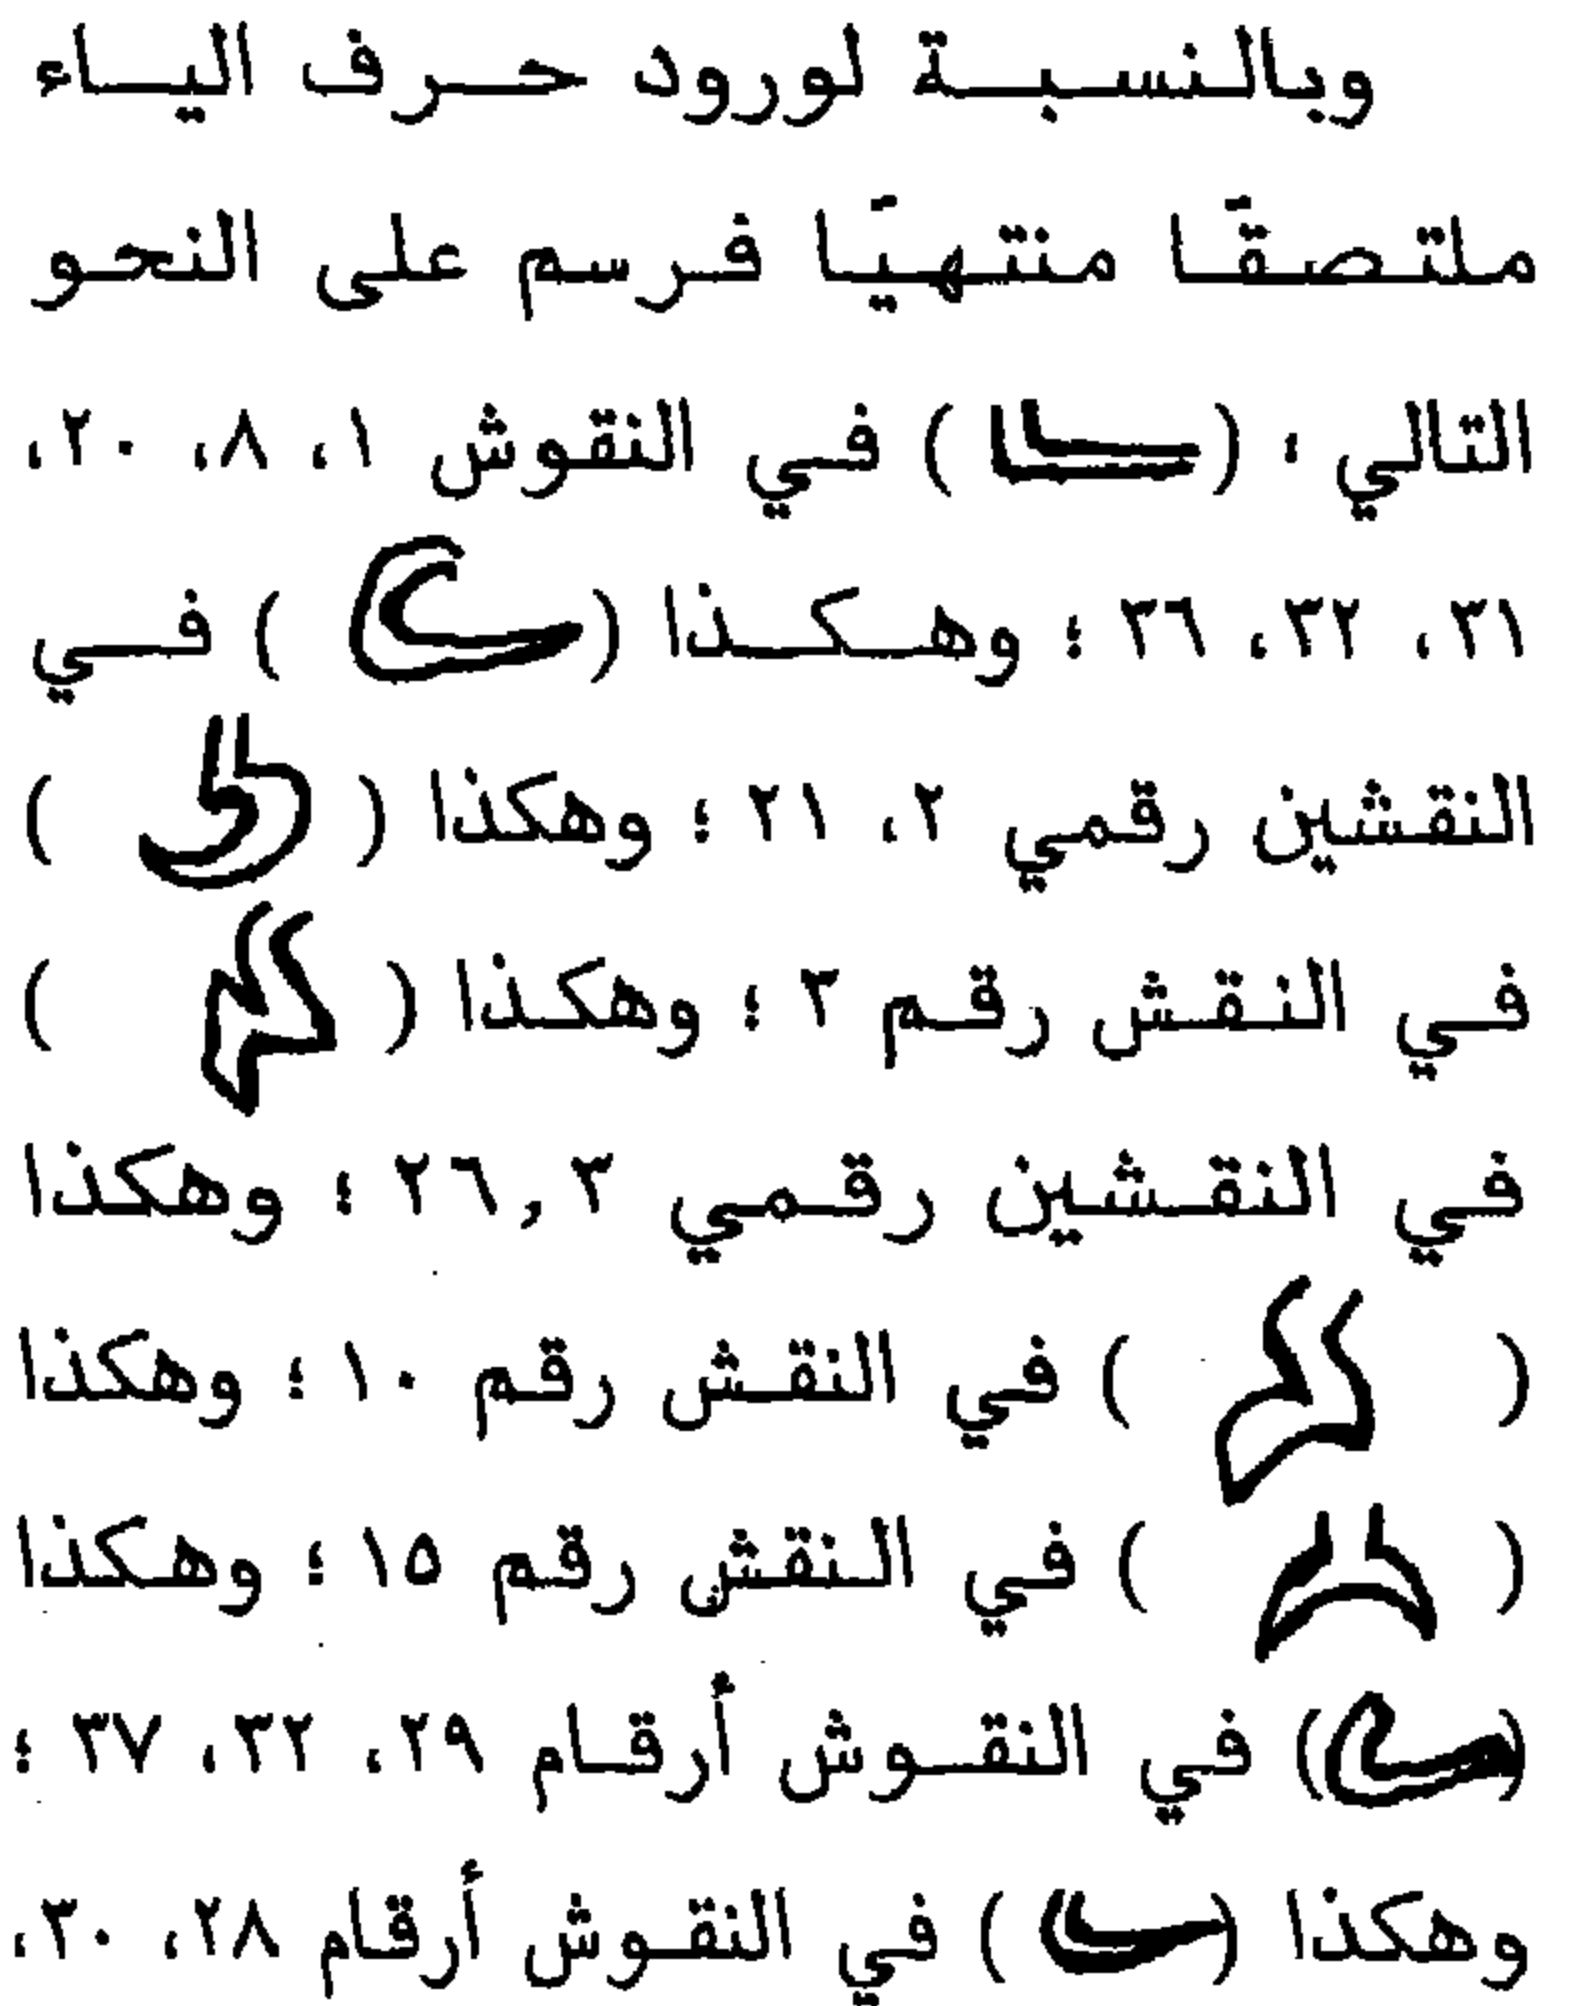 وبالنسبة لورود حرف الياء
ملتصقًا منتهيًا فرسم على النحو
التالي ؛ ( ) في النقوش ١، ٨، ٢٠،
٣١، ٣٢، ٣٦ ؛ وهكذا ( ) في
النقشين رقمي ٢، ٢١ ؛ وهكذا ( )
في النقش رقم ٣ ؛ وهكذا ( )
في النقشين رقمي ٣ , ٢٦ ؛ وهكذا
( ) في النقش رقم ١٠ ؛ وهكذا
( ) في النقش رقم ١٥ ؛ وهكذا
( ) في النقوش أرقام ٢٩، ٣٢، ٣٧ ؛
وهكذا ( ) في النقوش أرقام ٢٨، ٣٠،